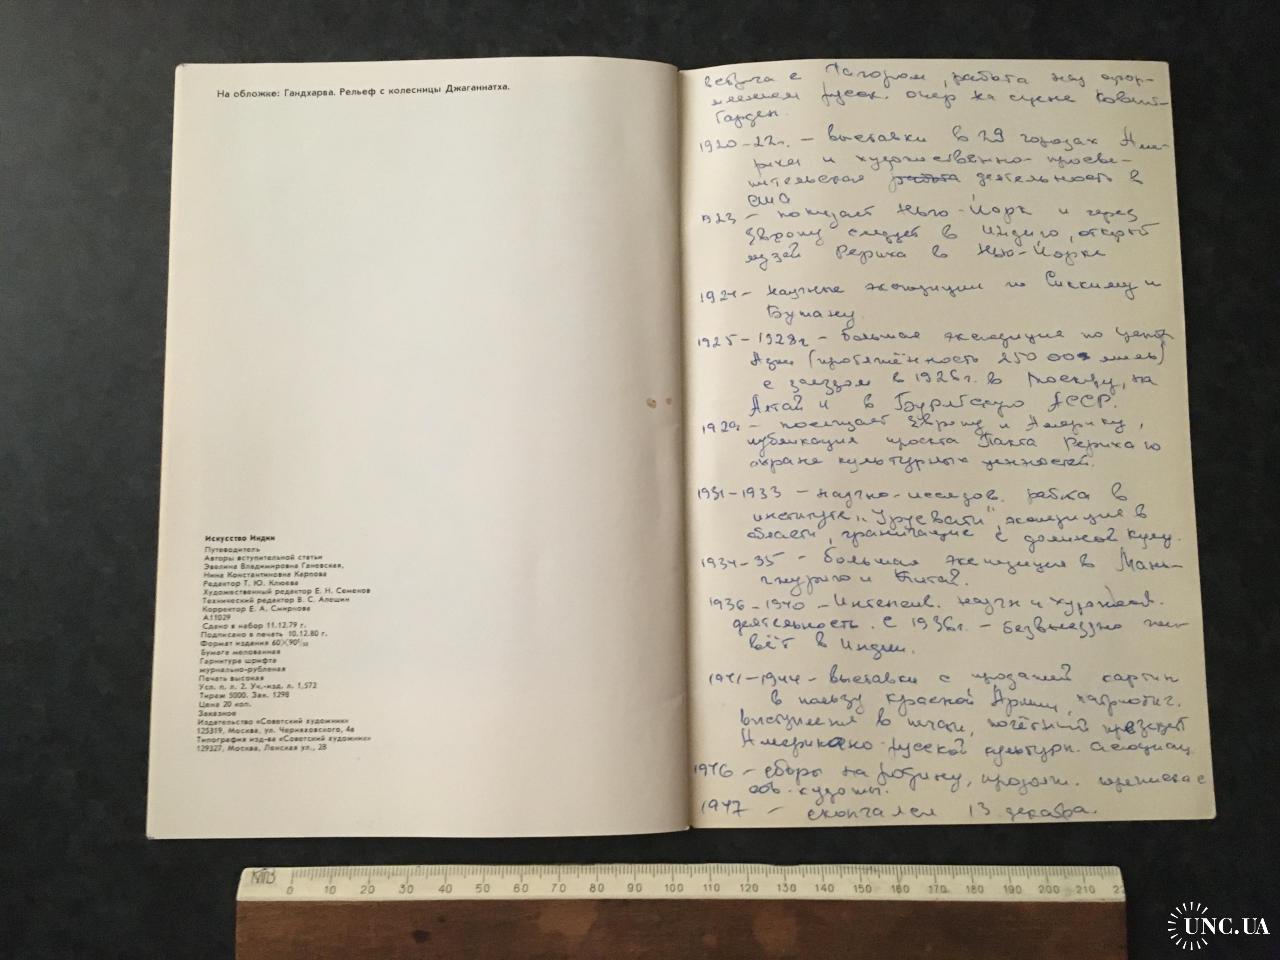 На обложке: Гандхарва. Рельеф с колесницы Джаганнатха.
Искусство Индии
Путеводитель
Авторы вступительной статьи
Эвелина Владимировна Гановская,
Нина Константиновна Карпова
Редактор Т. Ю. Клюева
Художественный редактор Е. Н. Семенов
Технический редактор В. С. Алешин
Корректор Е. А. Смирнова
А11029
Сдано в набор 11.12.79 г.
Подписано в печать 10.12.80 г.
Формат издания 60×90¹/₃₂
Бумага мелованная
Гарнитура шрифта
журнально-рубленая
Печать высокая
Усл. п. л. 2. Уч.-изд. л. 1,572
Тираж 5000. Зак. 1298
Цена 20 коп.
Заказное
Издательство «Советский художник»
125319, Москва, ул. Черняховского, 4а
Типография изд-ва «Советский художник»
129327, Москва, Ленская ул., 28
встреча с Тагором, работа над офор-
млением русск. опер на сцене Ковент-
Гарден.
1920-22г. – выставки в 29 городах Аме-
рики и художественно-просве-
тительская работа деятельность в
США
1923 – покидает Нью-Йорк и через
Европу следует в Индию, открыт
музей Рериха в Нью-Йорке
1924 – научные экспедиции по Сиккиму и
Бутану.
1925-1928г – большая экспедиция по Центр
Азии (протяжённость 25000 миль)
с заездом в 1926г. в Москву, на
Алтай и в Бурятскую АССР.
1929 – посещает Европу и Америку,
публикация проекта Пакта Рериха по
охране культурных ценностей.
1931-1933 – научно-исследов. работа в
институте „Урусвати", экспедиция в
области, граничащие с долиной Кулу.
1934-35 – большая экспедиция в Мань-
чжурию и Китай.
1936-1940 – Интенсив. научн и художеств.
деятельность. С 1936г. – безвыездно жи-
вёт в Индии.
1941-1944 – выставки с продажей картин
в пользу Красной Армии, патриотич.
выступления в печати, почётный президент
Американо-русской культурн. ассоциац
1946 – сборы на родину, продолж. переписка с
сов. художн.
1947 – скончался 13 декабря.
0 10 20 30 40 50 60 70 80 90 100 110 120 130 140 150 160 170 180 190 200 210 22
UNC.UA